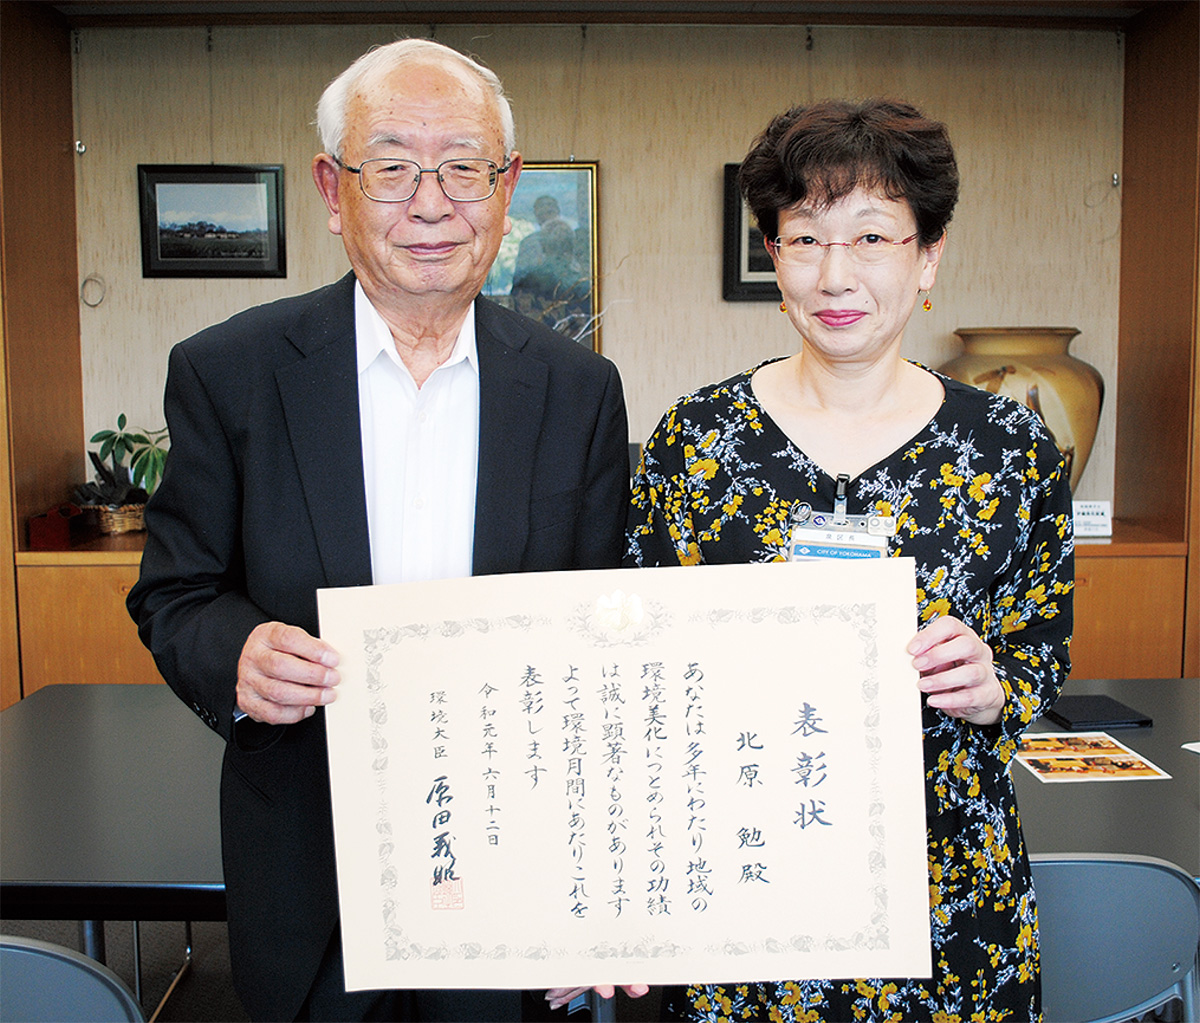 表彰状
北原 勉殿
あなたは多年にわたり地域の
環境美化につとめられその功績
は誠に顕著なものがあります
よって環境月間にあたりこれを
表彰します
令和元年六月十二日
環境大臣 原田義昭
CITY OF YOKOHAMA